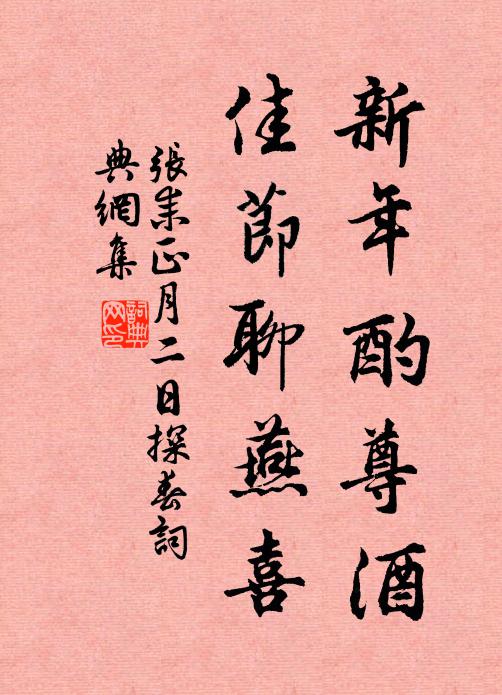 新年酌尊酒
佳節聊燕喜
張耒正月二日探春詞
典網集
詞典網印